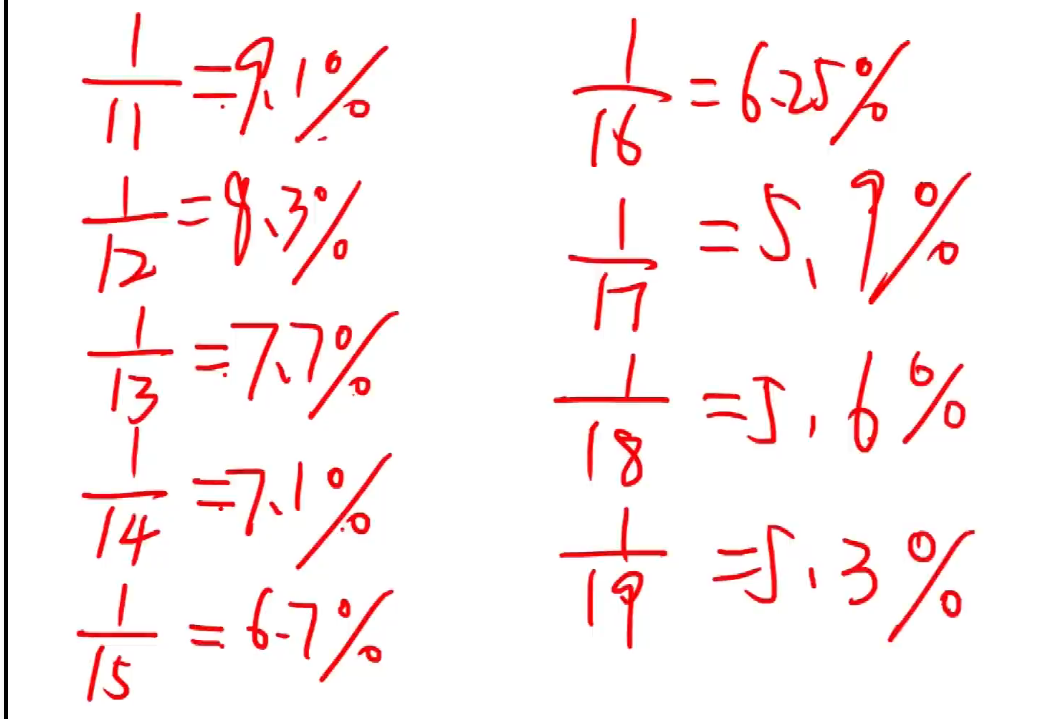 1/11 = 9.1%
1/12 = 8.3%
1/13 = 7.7%
1/14 = 7.1%
1/15 = 6.7%
1/16 = 6.25%
1/17 = 5.9%
1/18 = 5.6%
1/19 = 5.3%